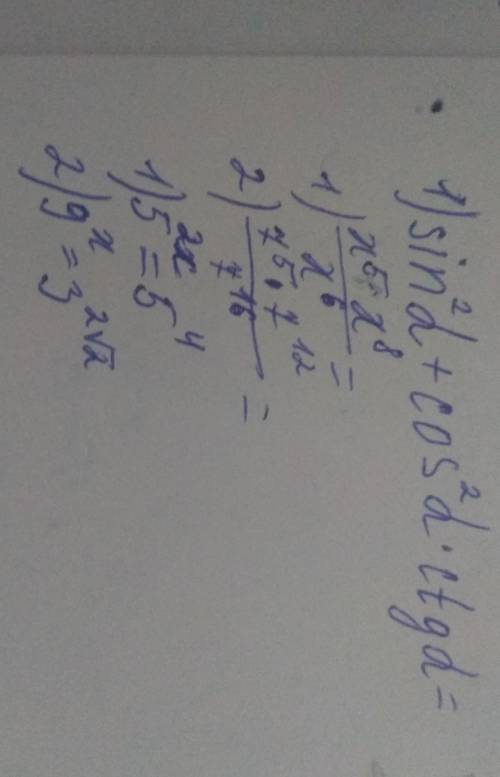 1) sin²α + cos²α · ctgα =
1) x⁵·x⁸ / x⁶ =
2) 7⁵·7¹² / 7¹⁶ =
1) 5²ˣ = 5⁴
2) 9ˣ = 3^(2√2)